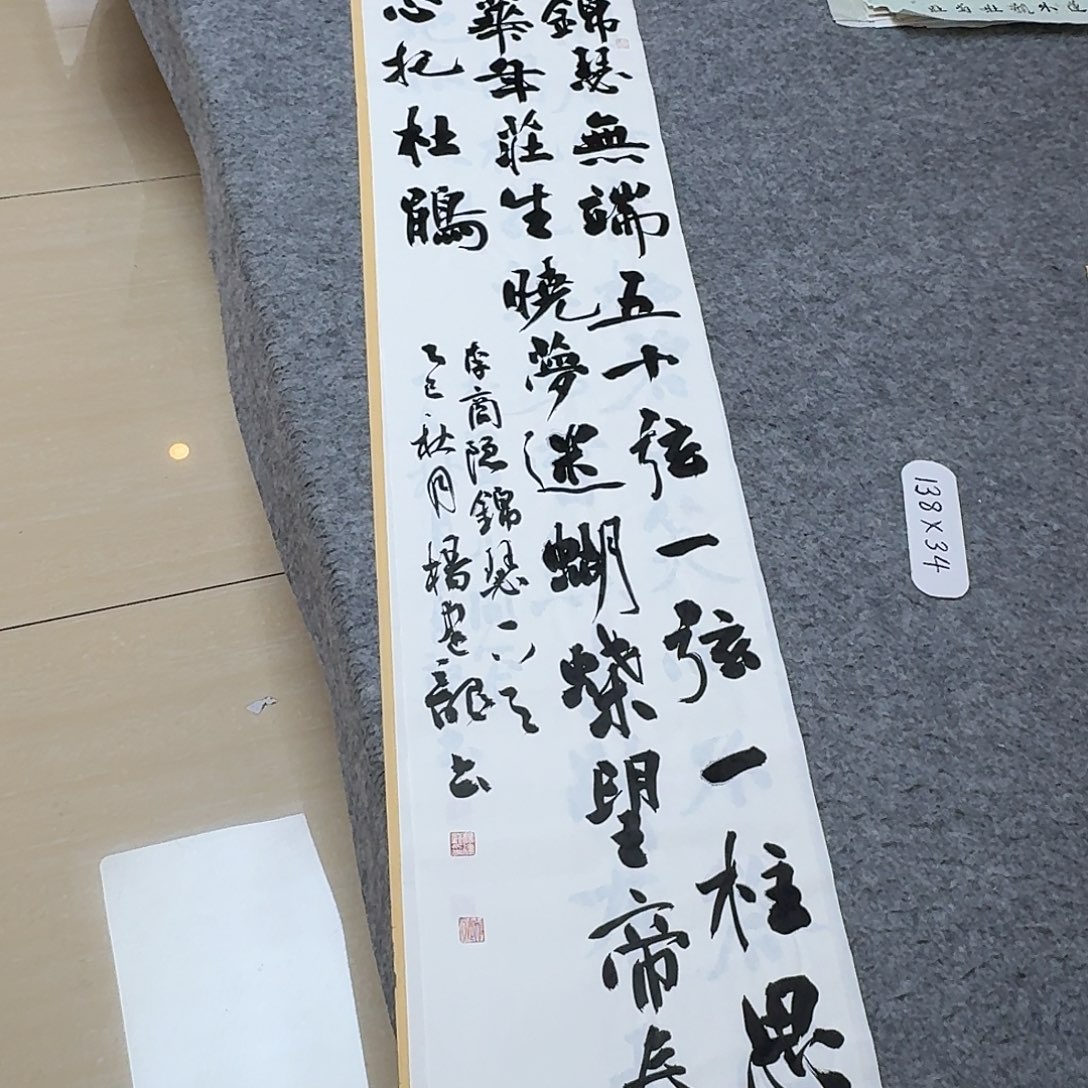 錦瑟無端五十弦一弦一柱思
華年莊生曉夢迷蝴蝶望帝春
心托杜鵑
李商隐錦瑟
乙巳秋月楊
138X34